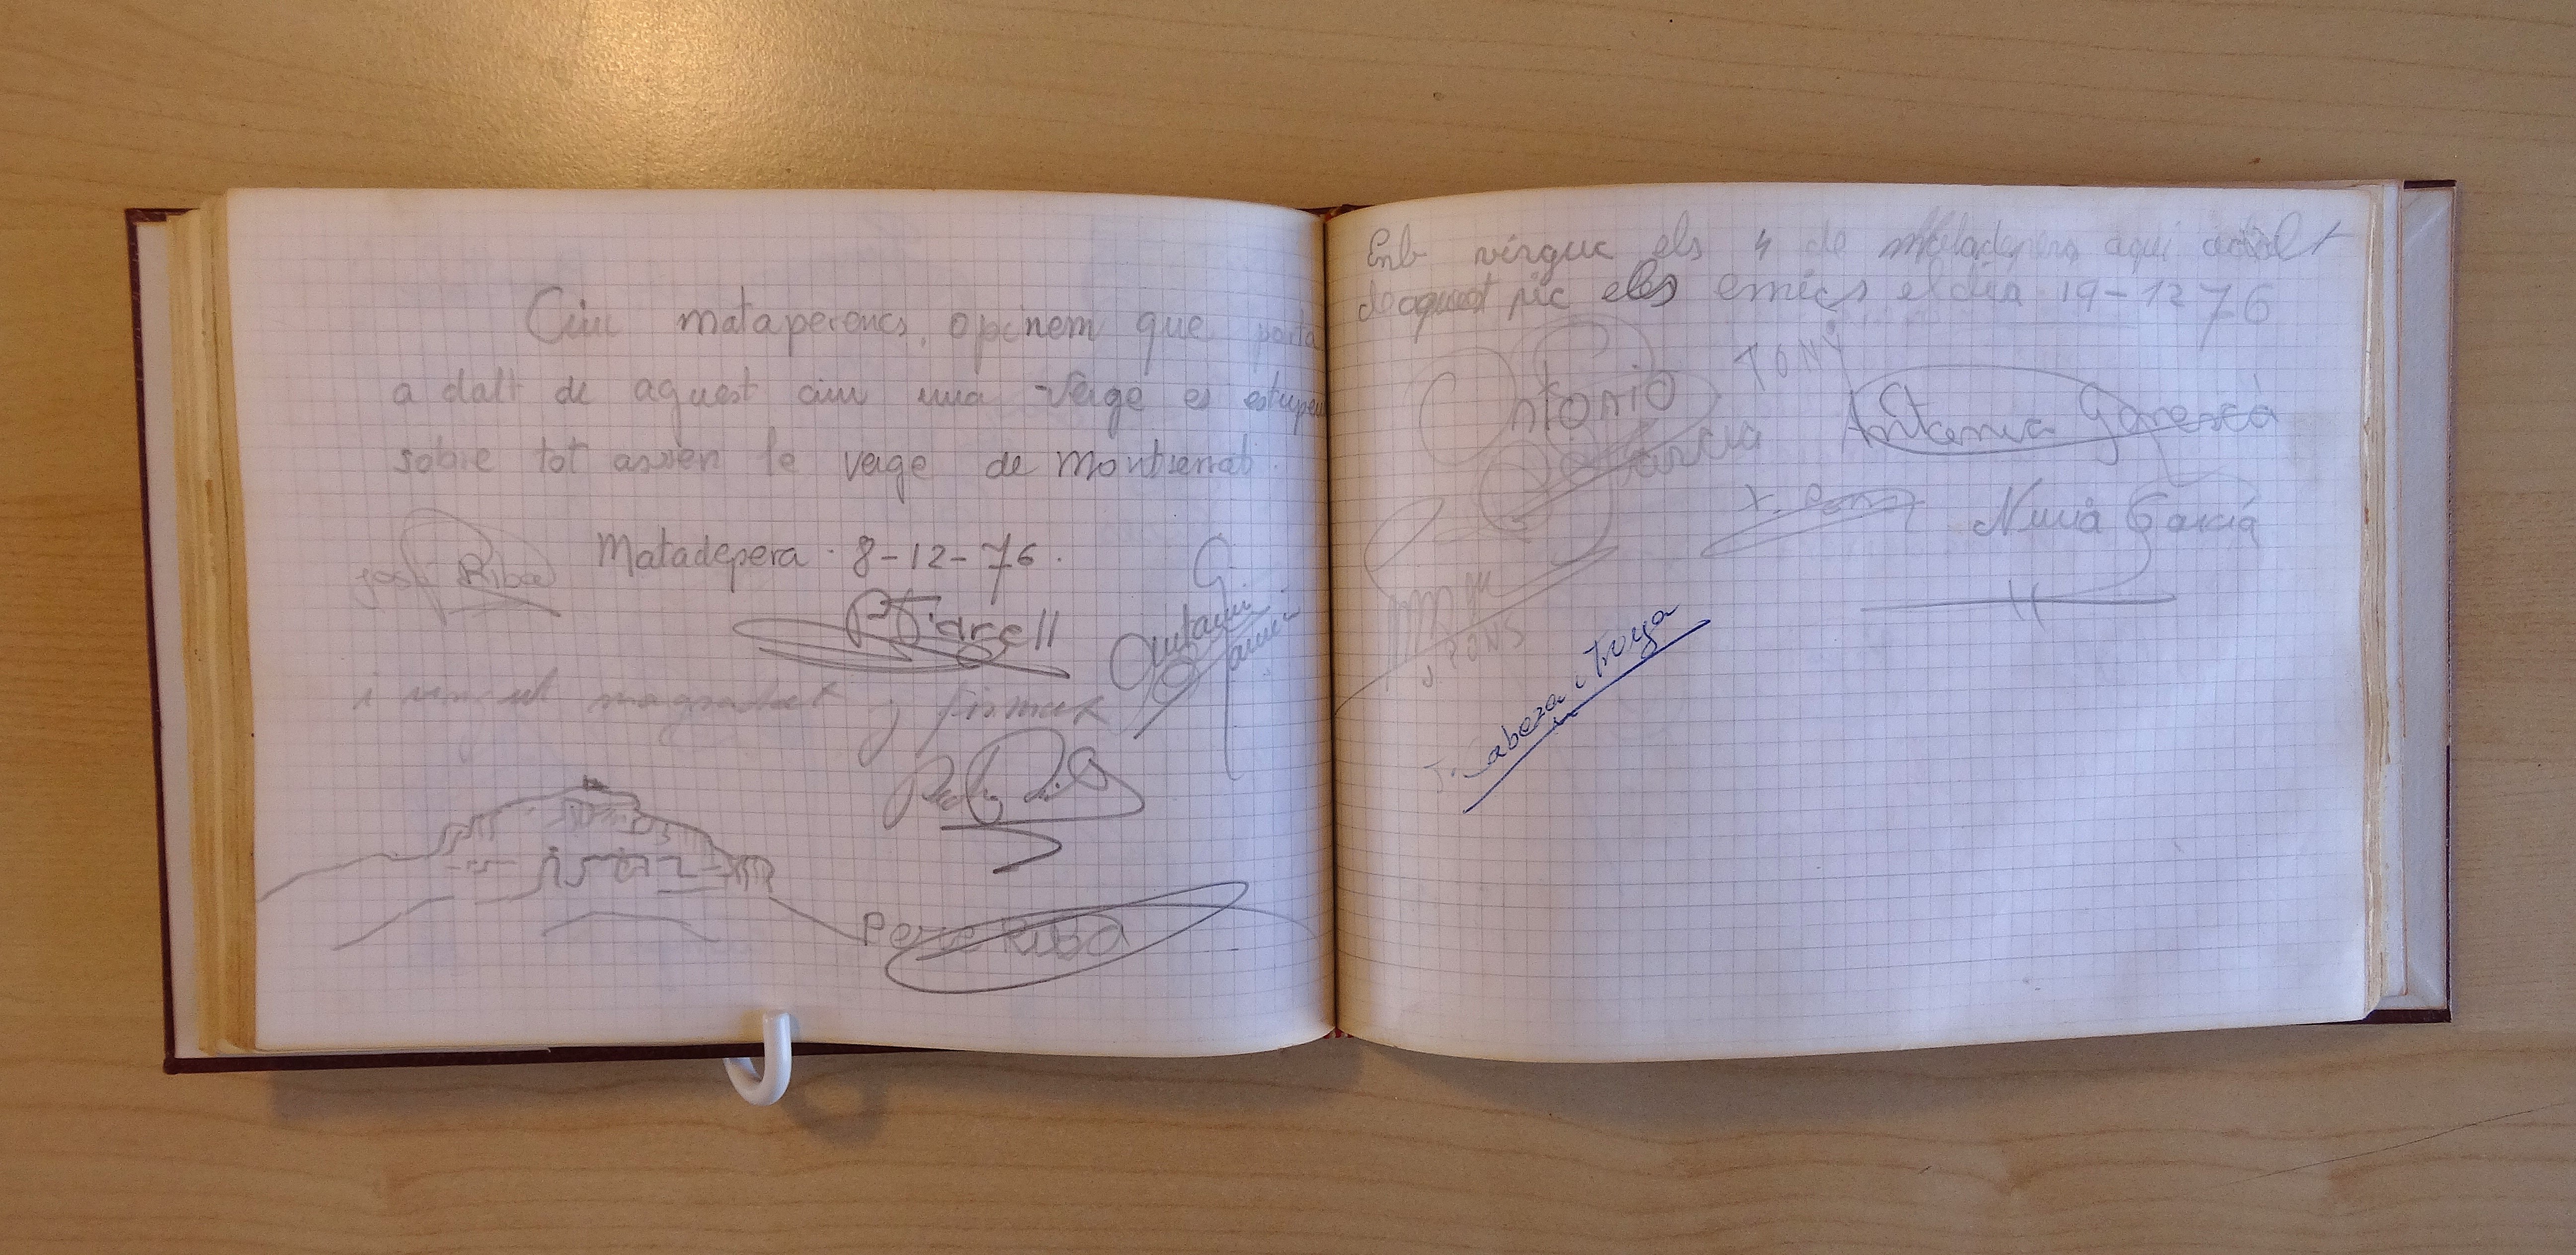 Cinc mataperencs, opinem que porta
a dalt de aquest cim una Verge es estupen
sobre tot assien le verge de Montserrat.
Matadepera · 8-12-76.
Josep Riba
P. Farell
G.
y firmat
Pere RIBA
els 4 de Matadepera aqui adalt
de aquest pic els emics el dia 19-12 76
TONY
Antonio
Garcia
Antonia
X. Pons
Nuria Garcia
J. PONS
J. Cabeza i Troya